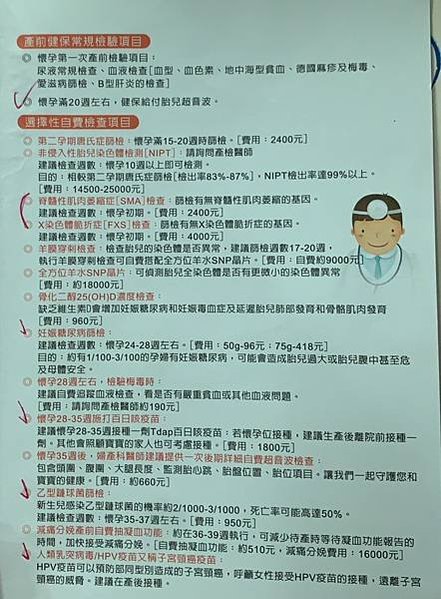 產前健保常規檢驗項目
懷孕第一次產前檢驗項目：
尿液常規檢查、血液檢查[血型、血色素、地中海型貧血、德國麻疹及梅毒、
愛滋病篩檢、B型肝炎的檢查]
懷孕滿20週左右，健保給付胎兒超音波。
選擇性自費檢查項目
第二孕期唐氏症篩檢：懷孕滿15-20週時篩檢。[費用：2400元]
非侵入性胎兒染色體檢測[NIPT]：請詢問產檢醫師
建議檢查週數：懷孕10週以上即可檢測。
目的：相較第二孕期唐氏症篩檢[檢出率83%-87%]，NIPT檢出率達99%以上。
[費用：14500-25000元]
脊髓性肌肉萎縮症[SMA]檢查：篩檢有無脊髓性肌肉萎縮的基因。
建議檢查週數：懷孕初期。[費用：2400元]
X染色體脆折症[FXS]檢查：篩檢有無X染色體脆折症的基因。
建議檢查週數：懷孕初期。[費用：4000元]
羊膜穿刺檢查：檢查胎兒的染色體是否異常，建議篩檢週數17-20週，
執行羊膜穿刺檢查可自費搭配全方位羊水SNP晶片。[費用：自費約9000元]
全方位羊水SNP晶片：可偵測胎兒全染色體是否有更微小的染色體異常
[費用：約18000元]
骨化二醇25(OH)D濃度檢查：
缺乏維生素D會增加妊娠糖尿病和妊娠毒血症及延遲胎兒肺部發育和骨骼肌肉發育
[費用：960元]
妊娠糖尿病篩檢：
建議檢查週數：懷孕24-28週左右。[費用：50g-96元，75g-418元]
目的：約有1/100-3/100的孕婦有妊娠糖尿病，可能會造成胎兒過大或胎兒腹中甚至危
及母體安全。
懷孕28週左右，檢驗梅毒時：
建議自費追蹤血液檢查，看是否有嚴重貧血或其他血液問題。
[費用：請詢問產檢醫師約190元]
懷孕28-35週施打百日咳疫苗：
建議懷孕28-35週接種一劑Tdap百日咳疫苗；若懷孕位接種，建議生產後離院前接種一
劑。其他會照顧寶寶的家人也可考慮接種。[費用：1800元]
懷孕35週後，婦產科醫師建議提供一次後期詳細自費超音波檢查：
包含頭圍、腹圍、大腿長度、監測胎心跳、胎盤位置、胎位項目。讓我們一起守護您和
寶寶的健康。[費用：約660元]
乙型鏈球菌篩檢：
新生兒感染乙型鏈球菌的機率約2/1000-3/1000，死亡率可能高達50%。
建議檢查週數：懷孕35-37週左右。[費用：950元]
減痛分娩產前自費抽凝血功能：約在36-39週執行，可減少待產時等待凝血功能報告的
時間，加快接受減痛分娩。[自費抽凝血功能：約510元，減痛分娩費用：16000元]
人類乳突病毒/HPV疫苗又稱子宮頸癌疫苗：
HPV疫苗可以預防部同型別造成的子宮頸癌，呼籲女性接受HPV疫苗的接種，遠離子宮
頸癌的威脅。建議在產後接種。